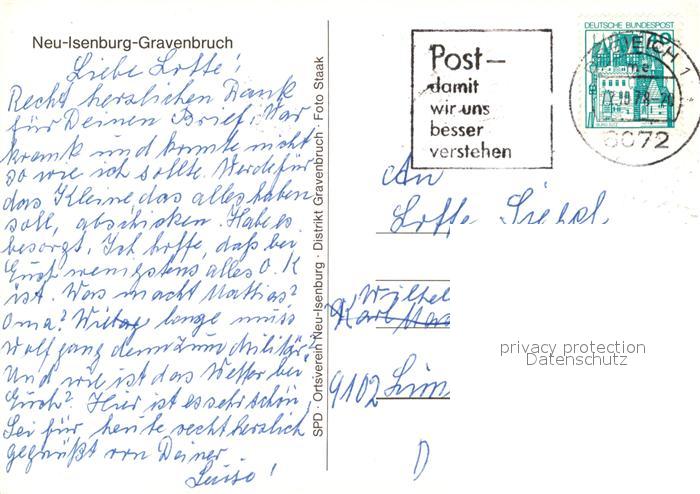 Neu-Isenburg-Gravenbruch
Liebe Lotte!
Recht herzlichen Dank
für Deinen Brief. War
krank und konnte nicht
so wie ich sollte. Werde für
das Kleine das alles haben
soll, abschicken. Habe es
besorgt. Ich hoffe, daß bei
Euch wenigstens alles O.K
ist. Was macht Mathias?
Oma? Wie lange muss
Wolfgang denn zum Militär?
Und wie ist das Wetter bei
Euch? Hier ist es sehr schön
Sei für heute recht herzlich
gegrüßt von Deiner
Luise!
SPD · Ortsverein Neu-Isenburg · Distrikt Gravenbruch · Foto Staak
Post–
damit
wir uns
besser
verstehen
DEUTSCHE BUNDESPOST
6072
An
Lotte
Wilhel
Karl
9102
privacy protection
Datenschutz
D